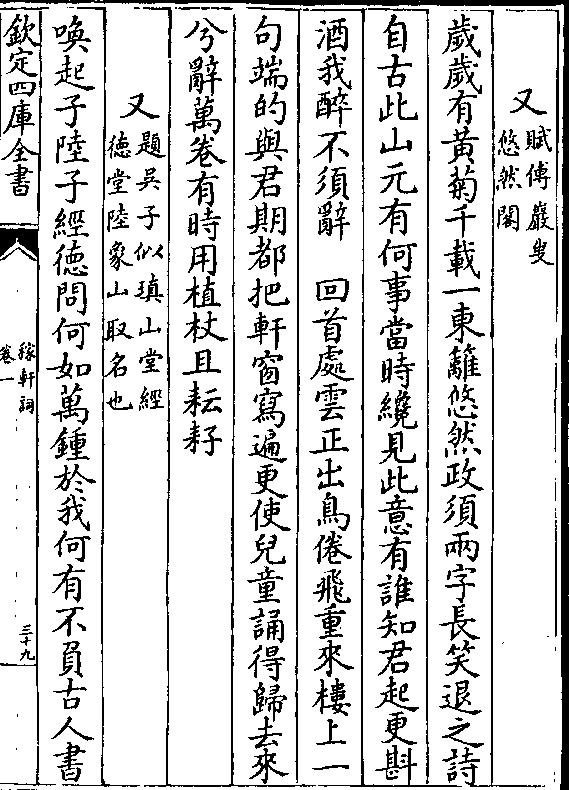 又賦傅巖叟
悠然閣
歲歲有黃菊千載一東籬悠然政須兩字長笑退之詩
自古此山元有何事當時纔見此意有誰知君起更斟
酒我醉不須辭　回首處雲正出鳥倦飛重來樓上一
句端的與君期都把軒窗寫遍更使兒童誦得歸去來
兮辭萬卷有時用植杖且耘耔
又題吳子似瑱山堂經
德堂陸象山取名也
喚起子陸子經德問何如萬鍾於我何有不負古人書
欽定四庫全書
稼軒詞
卷一
三十九